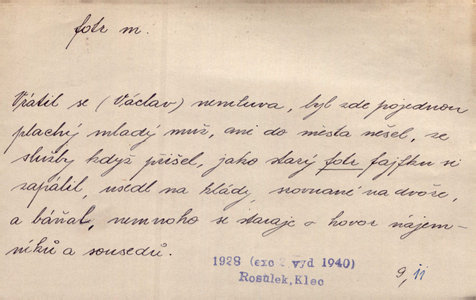 fotr m.
Vrátil se (Václav) nemluva, byl zde pojednou
plachý mladý muž, ani do města nešel, ze
služby když přišel, jako starý fotr fajfku si
zapálil, usedl na klády, srovnané na dvoře,
a báňal, nemnoho se staraje o hovor nájem-
níků a sousedů.
1928 (exc 2 vyd 1940)
Rosůlek, Klec
9, 11